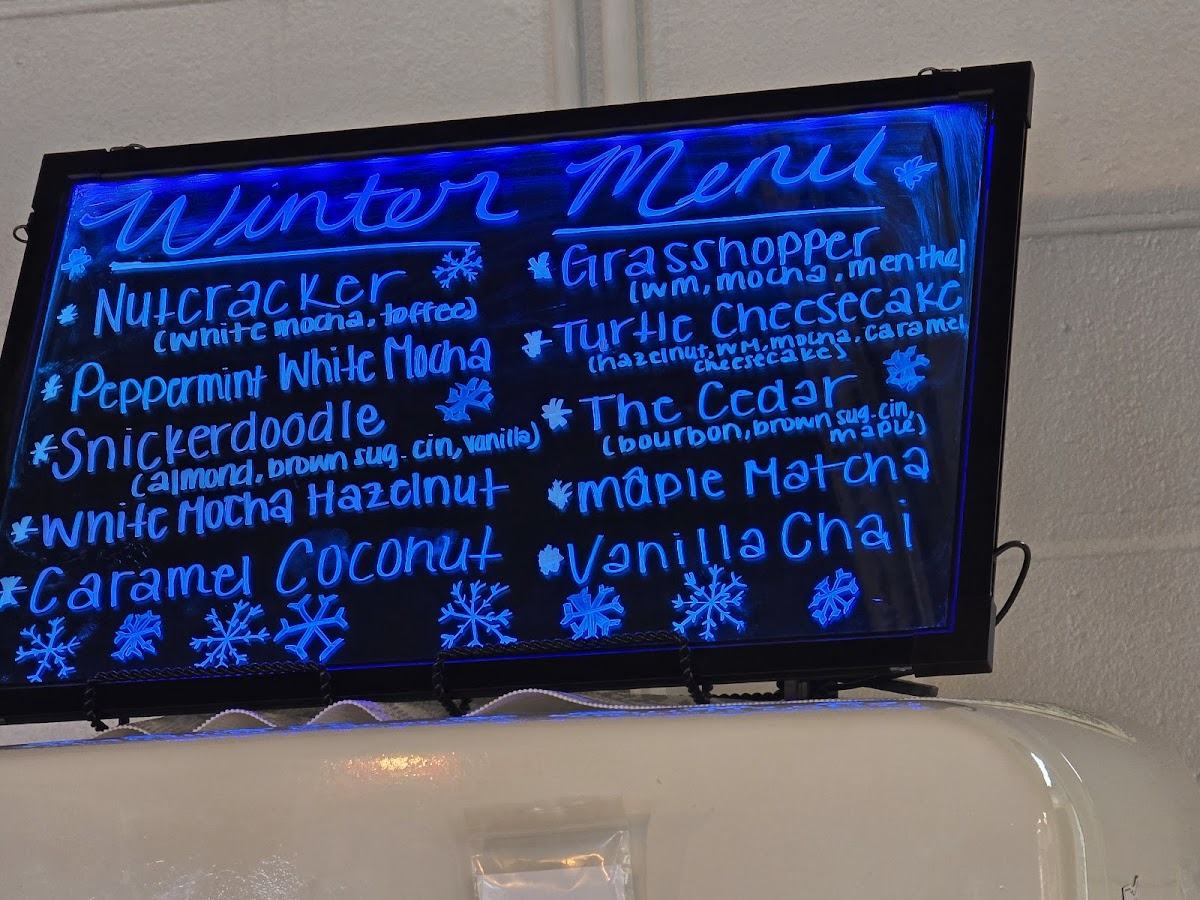 Winter Menu
Nutcracker
(white mocha, toffee)
Peppermint White Mocha
Snickerdoodle
(almond, brown sug. cin, vanilla)
White Mocha Hazelnut
Caramel Coconut
Grasshopper
(WM, mocha, menthe)
Turtle Cheesecake
(hazelnut, WM, mocha, caramel
cheesecake)
The Cedar
(bourbon, brown sug. cin,
maple)
maple Matcha
Vanilla Chai